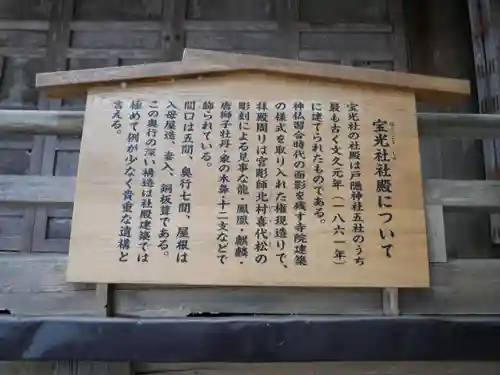 宝光社社殿について
宝光社の社殿は戸隠神社五社のうち
最も古く文久元年（一八六一年）
に建てられたものである。
神仏習合時代の面影を残す寺院建築
の様式を取り入れた権現造りで、
拝殿周りは宮彫師北村喜代松の
彫刻による見事な龍・鳳凰・麒麟・
唐獅子牡丹・象の木鼻・十二支などで
飾られている。
間口は五間、奥行七間、屋根は
入母屋造、妻入、銅板葺である。
この奥行の深い構造は社殿建築では
極めて例が少なく貴重な遺構と
言える。